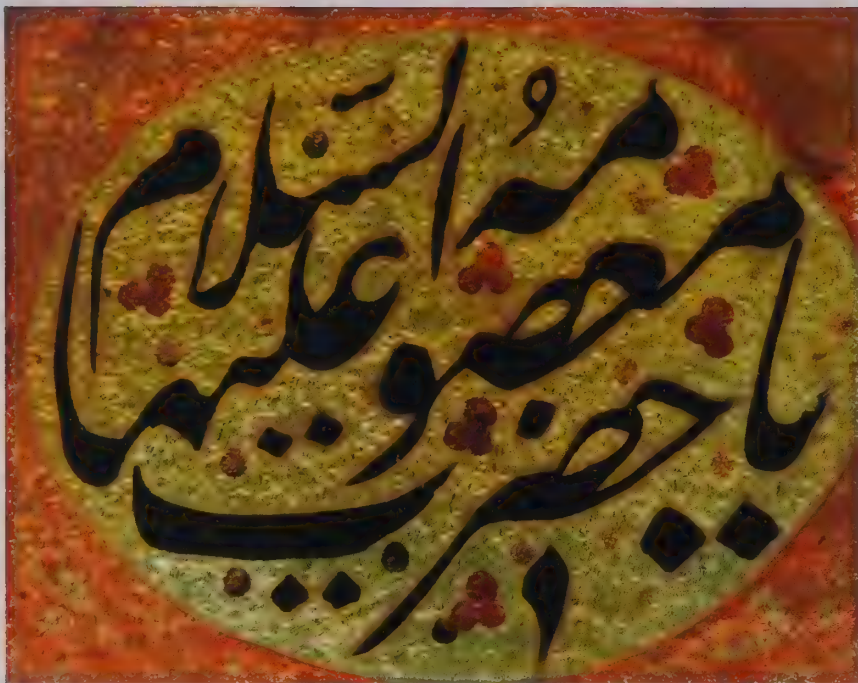 یا حضرت
معصومه
علیها السلام